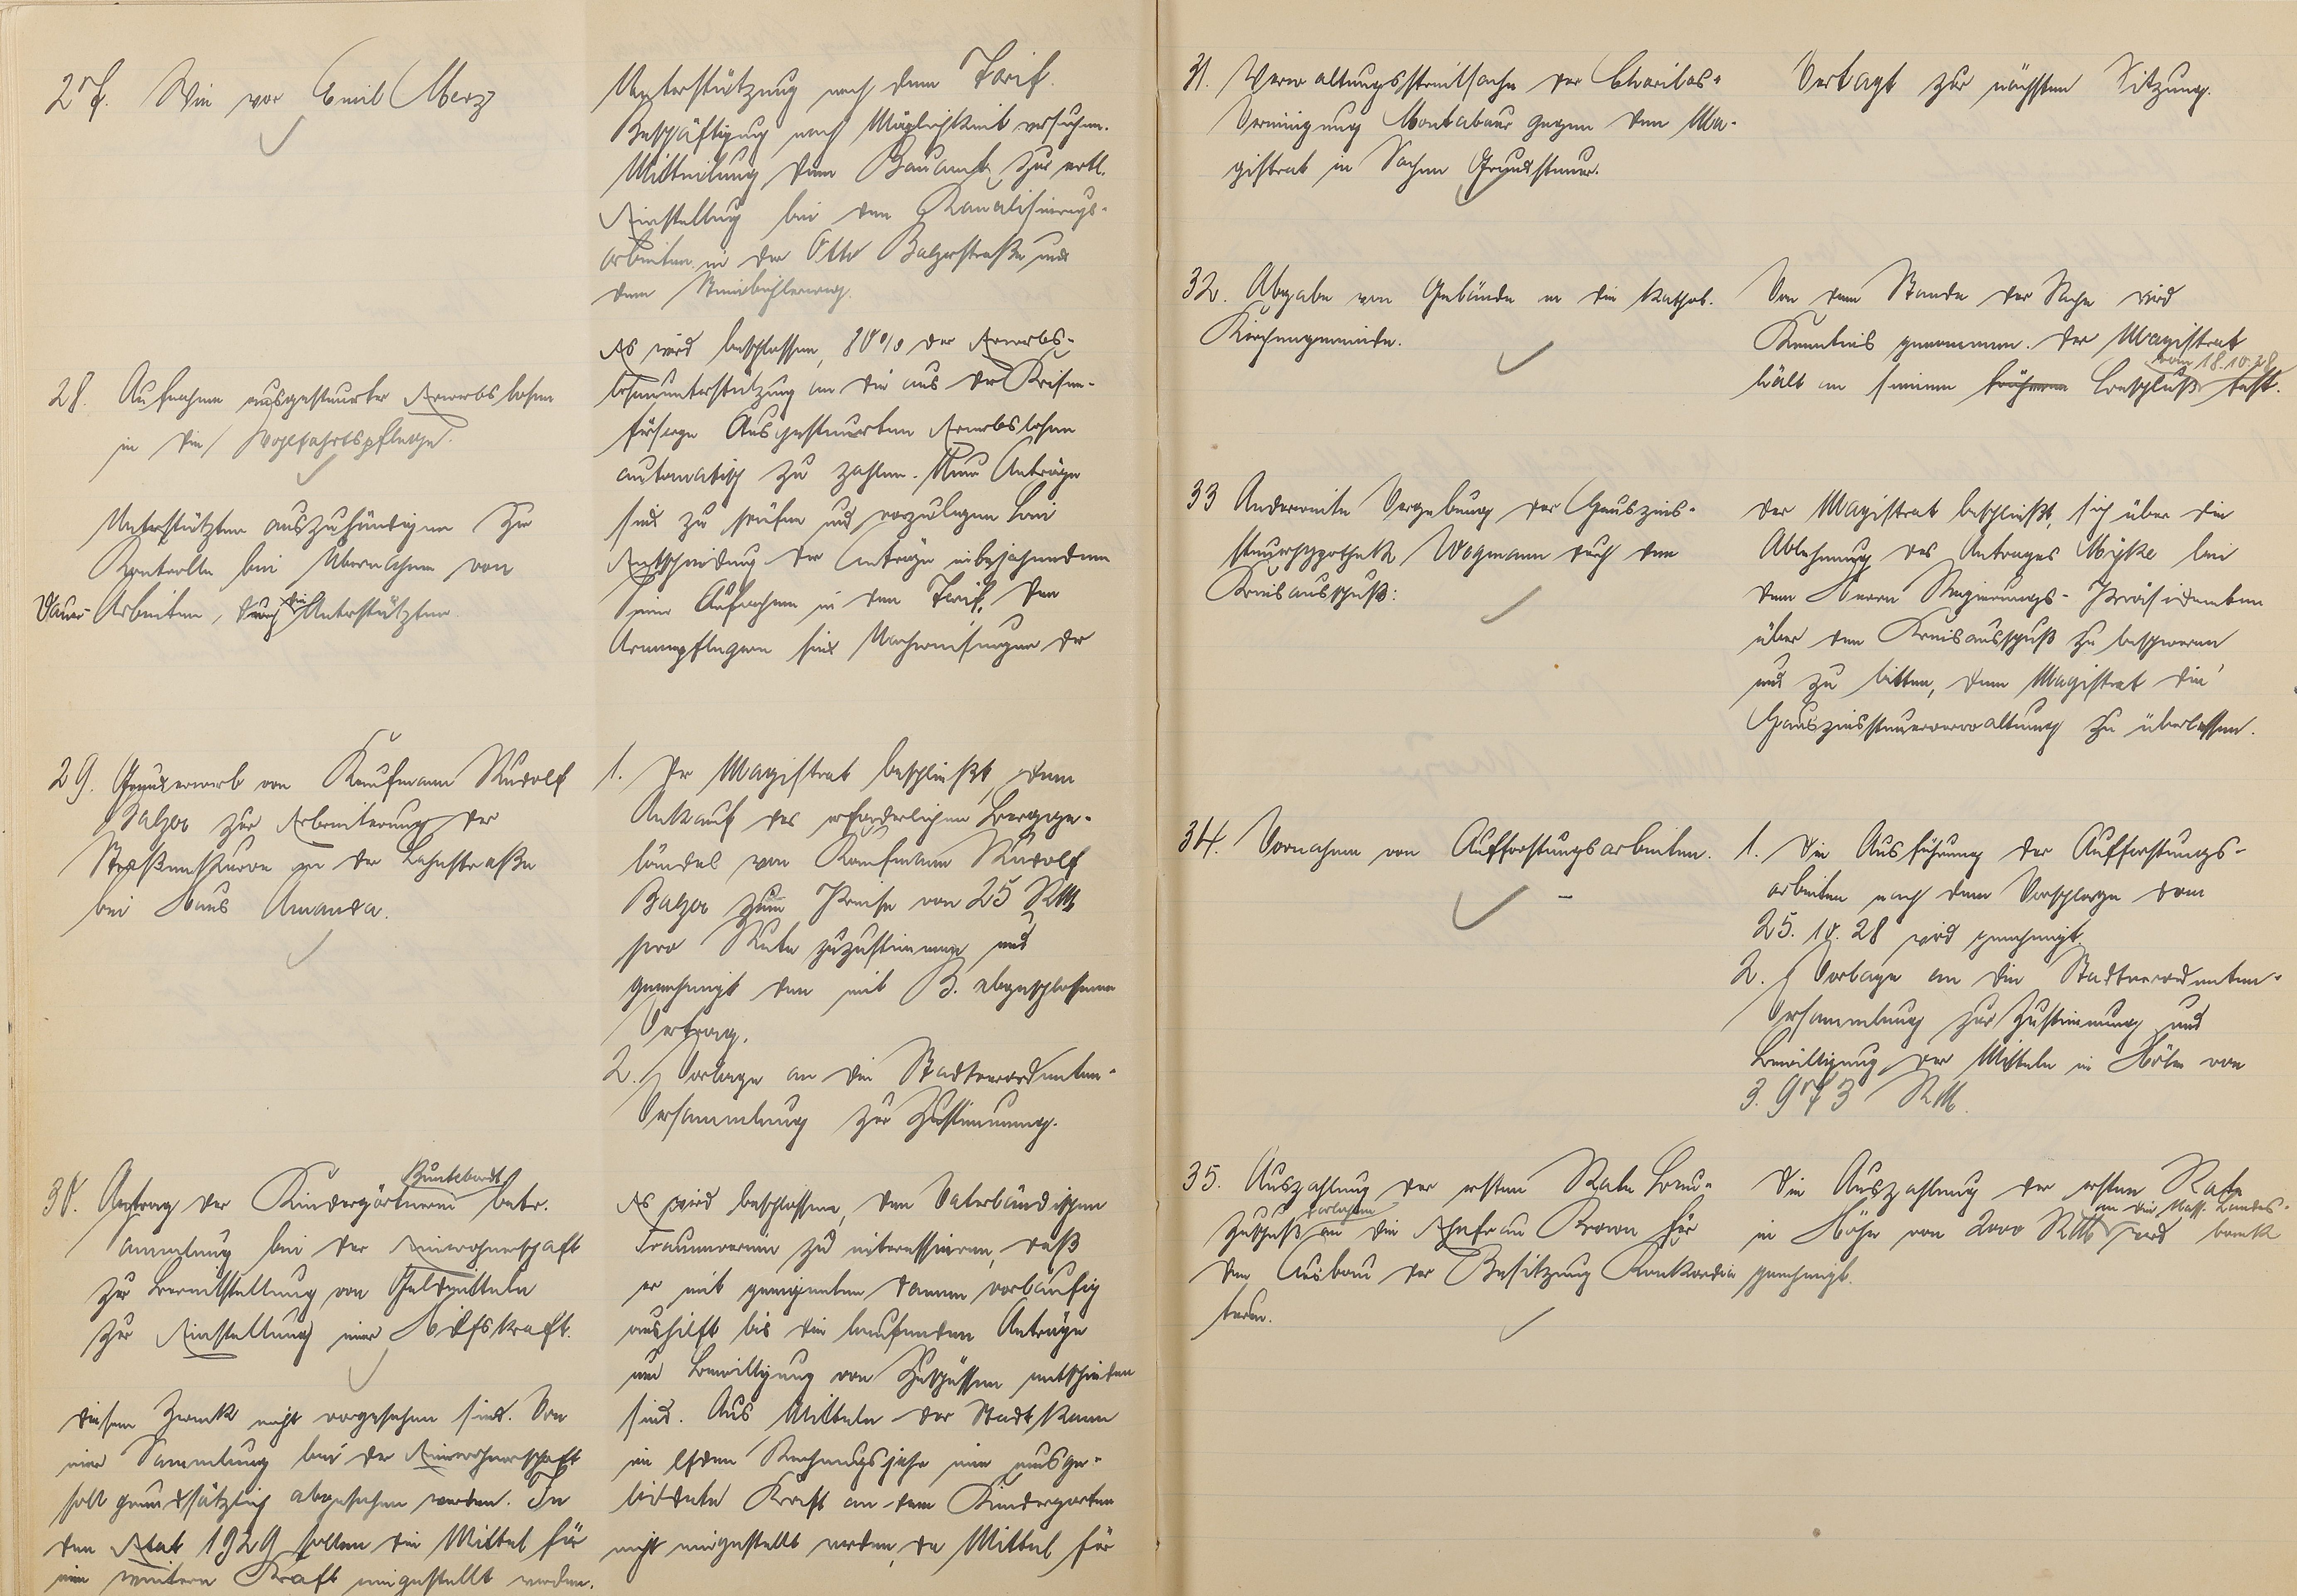 27. Wie vor Emil Merz
Unterstützung nach dem Tarif.
Beschäftigung nach Möglichkeit versuchen.
Mitteilung dem Bauamt zur evtl.
Einstellung bei den Kanalisierungs-
arbeiten in der Otto Balzerstraße und
dem Steinbühlerweg.
28. Aufnahme ausgesteuerter Erwerbslosen
in die Wohlfahrtspflege.
Es wird beschlossen, 80% der Erwerbs-
losenunterstützung an die aus der Krisen-
fürsorge Ausgesteuerten Erwerbslosen
automatisch zu zahlen. Neue Anträge
sind zu prüfen und vorzulegen bei
Entscheidung der Anträge in bejahendem
Sinne Aufnahme in den Tarif. Den
Armenpflegern sind Nachweisungen der
Unterstützten auszuhändigen zur
Kontrolle bei Übernahme von
Dauer-Arbeiten, durch die Unterstützten.
29. Grunderwerb von Kaufmann Rudolf
Balzer zur Erbreiterung der
Straßenkurve an der Lahnstraße
bei Haus Amanda.
1. Der Magistrat beschließt, dem
Ankauf des erforderlichen Berge-
ländes von Kaufmann Rudolf
Balzer zum Preise von 25 RM
pro Rute zuzustimmen und
genehmigt den mit B. abgeschlossenen
Vertrag.
2. Vorlage an die Stadtverordneten-
Versammlung zur Zustimmung.
30. Antrag der Kindergärtnerin Buntebardt betr.
Sammlung bei der Einwohnerschaft
zur Bereitstellung von Geldmitteln
zur Einstellung einer Hilfskraft.
Es wird beschlossen, den Vaterländischen
Frauenverein zu interessieren, daß
er mit geeigneten Damen vorläufig
aushilft bis die laufenden Anträge
um Bewilligung von Zuschüssen entschieden
sind. Aus Mitteln der Stadt kann
im lfden Rechnungsjahr eine ausge-
bildete Kraft an dem Kindergarten
nicht eingestellt werden, da Mittel für
diesen Zweck nicht vorgesehen sind. Von
einer Sammlung bei der Einwohnerschaft
soll grundsätzlich abgesehen werden. In
den Etat 1929 sollen die Mittel für
eine weitere Kraft eingestellt werden.
31. Verwaltungsstreitsache der Charitas-
Vereinigung Montabaur gegen den Ma-
gistrat in Sachen Grundsteuer.
Vertagt zur nächsten Sitzung.
32. Abgabe von Gelände an die kathol.
Kirchengemeinde.
Von dem Stande der Sache wird
Kenntnis genommen. Der Magistrat
hält an seinem früheren Beschluß vom 18.10.28 fest.
33 Anderweite Vergebung der Hauszins-
steuerhypothek Wegmann durch den
Kreisausschuß:
Der Magistrat beschließt, sich über die
Ablehnung des Antrages bei
dem Herrn Regierungs-Präsidenten
über den Kreisausschuß zu beschweren
und zu bitten, dem Magistrat die
Hauszinssteuerverwaltung zu überlassen.
34. Vornahme von Aufforstungsarbeiten.
1. Die Ausführung der Aufforstungs-
arbeiten nach dem Vorschlage vom
25. 10. 28 wird genehmigt.
2. Vorlage an die Stadtverordneten-
Versammlung zur Zustimmung und
Bewilligung der Mitteln in Höhe von
3.973 RM.
35. Auszahlung der ersten Rate Bau-
Zuschuß darlehen an die Ehefrau Krown für
den Ausbau der Besitzung Konkordia
Die Auszahlung der ersten Rate
in Höhe von 2000 RM an die Nass. Landes-
bank wird
genehmigt.